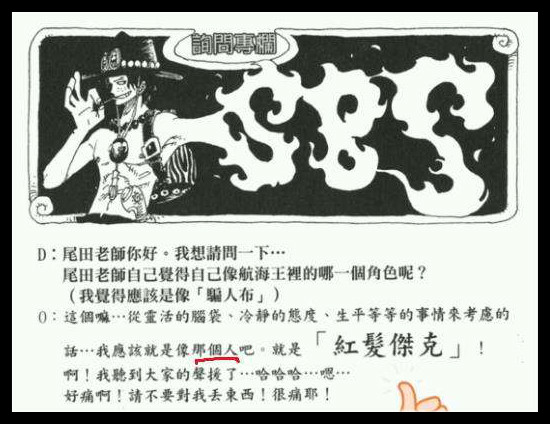 詢問專欄
SBS
D：尾田老師你好。我想請問一下…
尾田老師自己覺得自己像航海王裡的哪一個角色呢？
（我覺得應該是像「騙人布」）
O：這個嘛…從靈活的腦袋、冷靜的態度、生平等等的事情來考慮的
話…我應該就是像那個人吧。就是「紅髮傑克」！
啊！我聽到大家的聲援了…哈哈哈…嗯…
好痛啊！請不要對我丟東西！很痛耶！